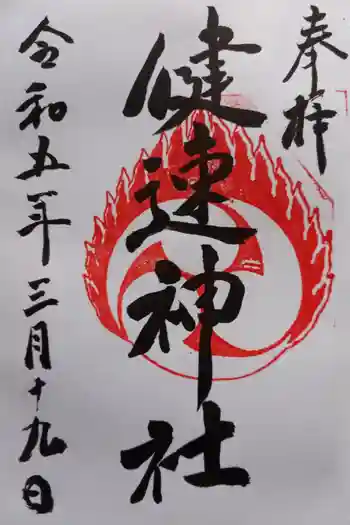 奉拝
健速神社
令和五年三月十九日